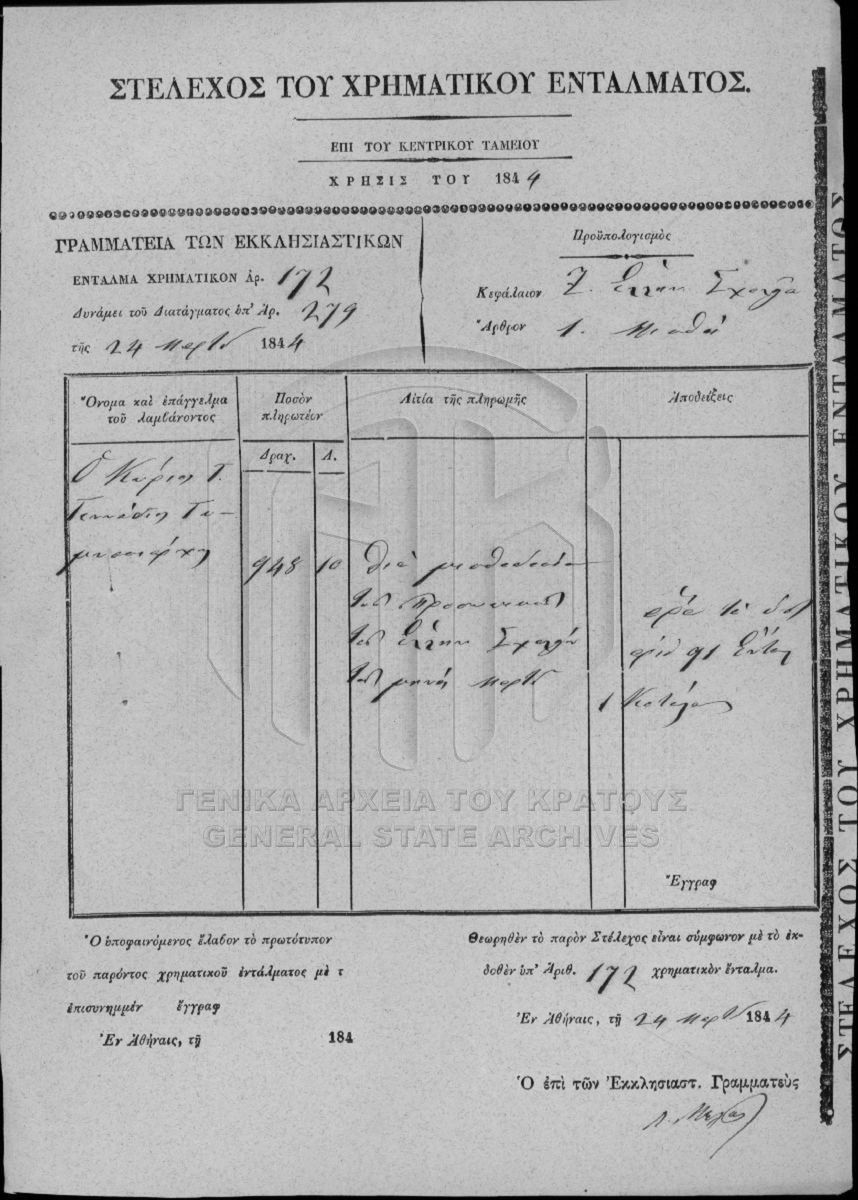 ΣΤΕΛΕΧΟΣ ΤΟΥ ΧΡΗΜΑΤΙΚΟΥ ΕΝΤΑΛΜΑΤΟΣ.
ΕΠΙ ΤΟΥ ΚΕΝΤΡΙΚΟΥ ΤΑΜΕΙΟΥ
ΧΡΗΣΙΣ ΤΟΥ 1844
ΓΡΑΜΜΑΤΕΙΑ ΤΩΝ ΕΚΚΛΗΣΙΑΣΤΙΚΩΝ
ΕΝΤΑΛΜΑ ΧΡΗΜΑΤΙΚΟΝ Ἀρ. 172
Δυνάμει τοῦ Διατάγματος ὑπ' Ἀρ. 279
τῆς 24 Μαρτίου 1844
Προϋπολογισμὸς
Κεφάλαιον Ζ. Ἑλλην. Σχολεῖα
Ἄρθρον 1. Μισθοὶ
Ὄνομα καὶ ἐπάγγελμα
τοῦ λαμβάνοντος
Ποσὸν
πληρωτέον
Αἰτία τῆς πληρωμῆς
Ἀποδείξεις
Δραχ. Λ.
Ὁ Κύριος Γ.
Γεννάδιος Γυ-
μνασιάρχης
948 10
διὰ μισθοδοσίαν
τοῦ προσωπικοῦ
τῶν Ἑλλην. Σχολείων
τοῦ μηνὸς Μαρτίου
ὅρα τὸ ὑπ'
ἀριθ 91 Ἔνταλ
1 Κατάλογος
ΓΕΝΙΚΑ ΑΡΧΕΙΑ ΤΟΥ ΚΡΑΤΟΥΣ
GENERAL STATE ARCHIVES
Ἔγγραφ
Ὁ ὑποφαινόμενος ἔλαβον τὸ πρωτότυπον
τοῦ παρόντος χρηματικοῦ ἐντάλματος μὲ τ
ἐπισυνημμέν ἔγγραφ
Ἐν Ἀθήναις, τῇ 184
Θεωρηθὲν τὸ παρὸν Στέλεχος εἶναι σύμφωνον μὲ τὸ ἐκ-
δοθὲν ὑπ' Ἀριθ. 172 χρηματικὸν ἔνταλμα.
Ἐν Ἀθήναις, τῇ 24 Μαρτίου 1844
Ὁ ἐπὶ τῶν Ἐκκλησιαστ. Γραμματεὺς
ΣΤΕΛΕΧΟΣ ΤΟΥ ΧΡΗΜΑΤΙΚΟΥ ΕΝΤΑΛΜΑΤΟΣ